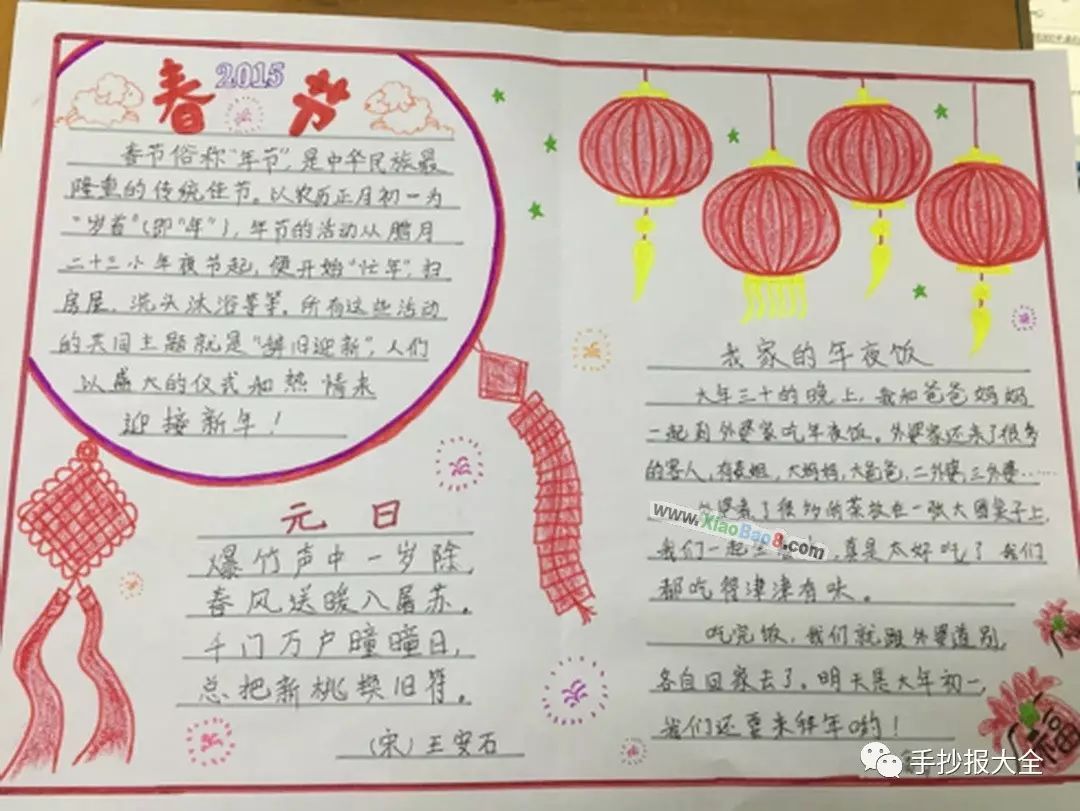 春 2015 节
春节俗称"年节",是中华民族最
隆重的传统佳节。以农历正月初一为
"岁首"(即"年"),年节的活动从腊月
二十三小年夜节起,便开始"忙年",扫
房屋、洗头沐浴等等。所有这些活动
的共同主题就是"辞旧迎新",人们
以盛大的仪式和热情来
迎接新年!
元日
爆竹声中一岁除,
春风送暖入屠苏。
千门万户曈曈日,
总把新桃换旧符。
(宋)王安石
我家的年夜饭
大年三十的晚上,我和爸爸妈妈
一起到外婆家吃年夜饭。外婆家还来了很多
的客人,有表姐,大妈妈,大爸爸,二外婆,三外婆……
外婆煮了很多的菜放在一张大圆桌子上,
我们一起,真是太好吃了 我们
都吃得津津有味。
吃完饭,我们就跟外婆道别,
各自回家去了。明天是大年初一,
我们还要来拜年哟!
福
www.XiaoBao8.com
手抄报大全